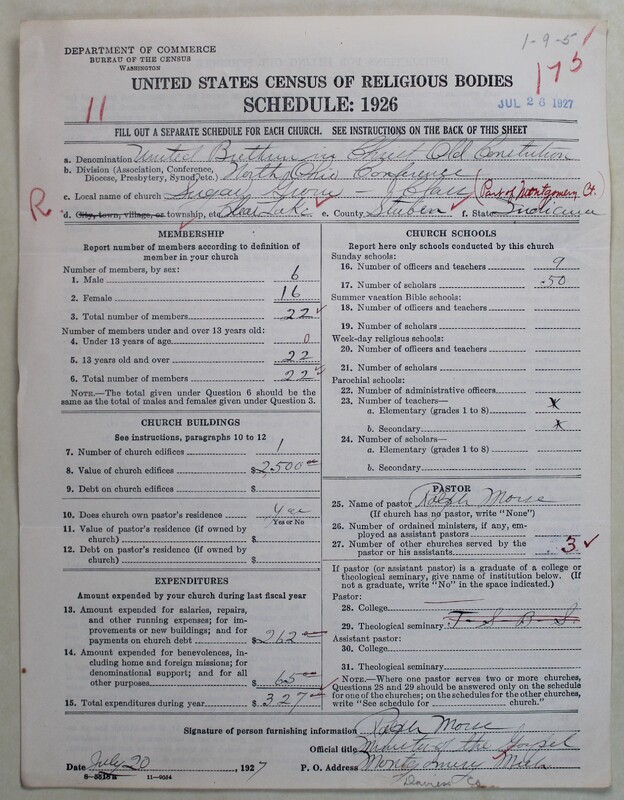 1-9-5
DEPARTMENT OF COMMERCE
BUREAU OF THE CENSUS
WASHINGTON
UNITED STATES CENSUS OF RELIGIOUS BODIES
175
11
SCHEDULE: 1926
JUL 26 1927
FILL OUT A SEPARATE SCHEDULE FOR EACH CHURCH. SEE INSTRUCTIONS ON THE BACK OF THIS SHEET
a. Denomination United Brethren in Christ Old Constitution
b. Division (Association, Conference, Diocese, Presbytery, Synod, etc.) North Ohio Conference
c. Local name of church Sugar Grove - Class (Part of Montgomery Ct.)
R
d. City, town, village, or township, etc. Clear Lake e. County Steuben f. State Indiana
MEMBERSHIP
Report number of members according to definition of member in your church
Number of members, by sex:
1. Male 6
2. Female 16
3. Total number of members 22
Number of members under and over 13 years old:
4. Under 13 years of age 0
5. 13 years old and over 22
6. Total number of members 22
NOTE.—The total given under Question 6 should be the same as the total of males and females given under Question 3.
CHURCH BUILDINGS
See instructions, paragraphs 10 to 12
7. Number of church edifices 1
8. Value of church edifices $2,500 00
9. Debt on church edifices $
10. Does church own pastor's residence
Yes or No
11. Value of pastor's residence (if owned by church) $
12. Debt on pastor's residence (if owned by church) $
EXPENDITURES
Amount expended by your church during last fiscal year
13. Amount expended for salaries, repairs, and other running expenses; for improvements or new buildings; and for payments on church debt $262
14. Amount expended for benevolences, including home and foreign missions; for denominational support; and for all other purposes $65 00
15. Total expenditures during year $327
CHURCH SCHOOLS
Report here only schools conducted by this church
Sunday schools:
16. Number of officers and teachers 9
17. Number of scholars 50
Summer vacation Bible schools:
18. Number of officers and teachers
19. Number of scholars
Week-day religious schools:
20. Number of officers and teachers
21. Number of scholars
Parochial schools:
22. Number of administrative officers
23. Number of teachers—
a. Elementary (grades 1 to 8) x
b. Secondary x
24. Number of scholars—
a. Elementary (grades 1 to 8)
b. Secondary
PASTOR
25. Name of pastor Ralph Morse
(If church has no pastor, write "None")
26. Number of ordained ministers, if any, employed as assistant pastors
27. Number of other churches served by the pastor or his assistants 3
If pastor (or assistant pastor) is a graduate of a college or theological seminary, give name of institution below. (If not a graduate, write "No" in the space indicated.)
Pastor:
28. College
29. Theological seminary
Assistant pastor:
30. College
31. Theological seminary
NOTE.—Where one pastor serves two or more churches, Questions 28 and 29 should be answered only on the schedule for one of the churches; on the schedules for the other churches, write "See schedule for church."
Signature of person furnishing information Ralph Morse
Official title Minister of the Gospel
Date July 20, 1927 P. O. Address Montgomery Mich
8-5518a 11-9034